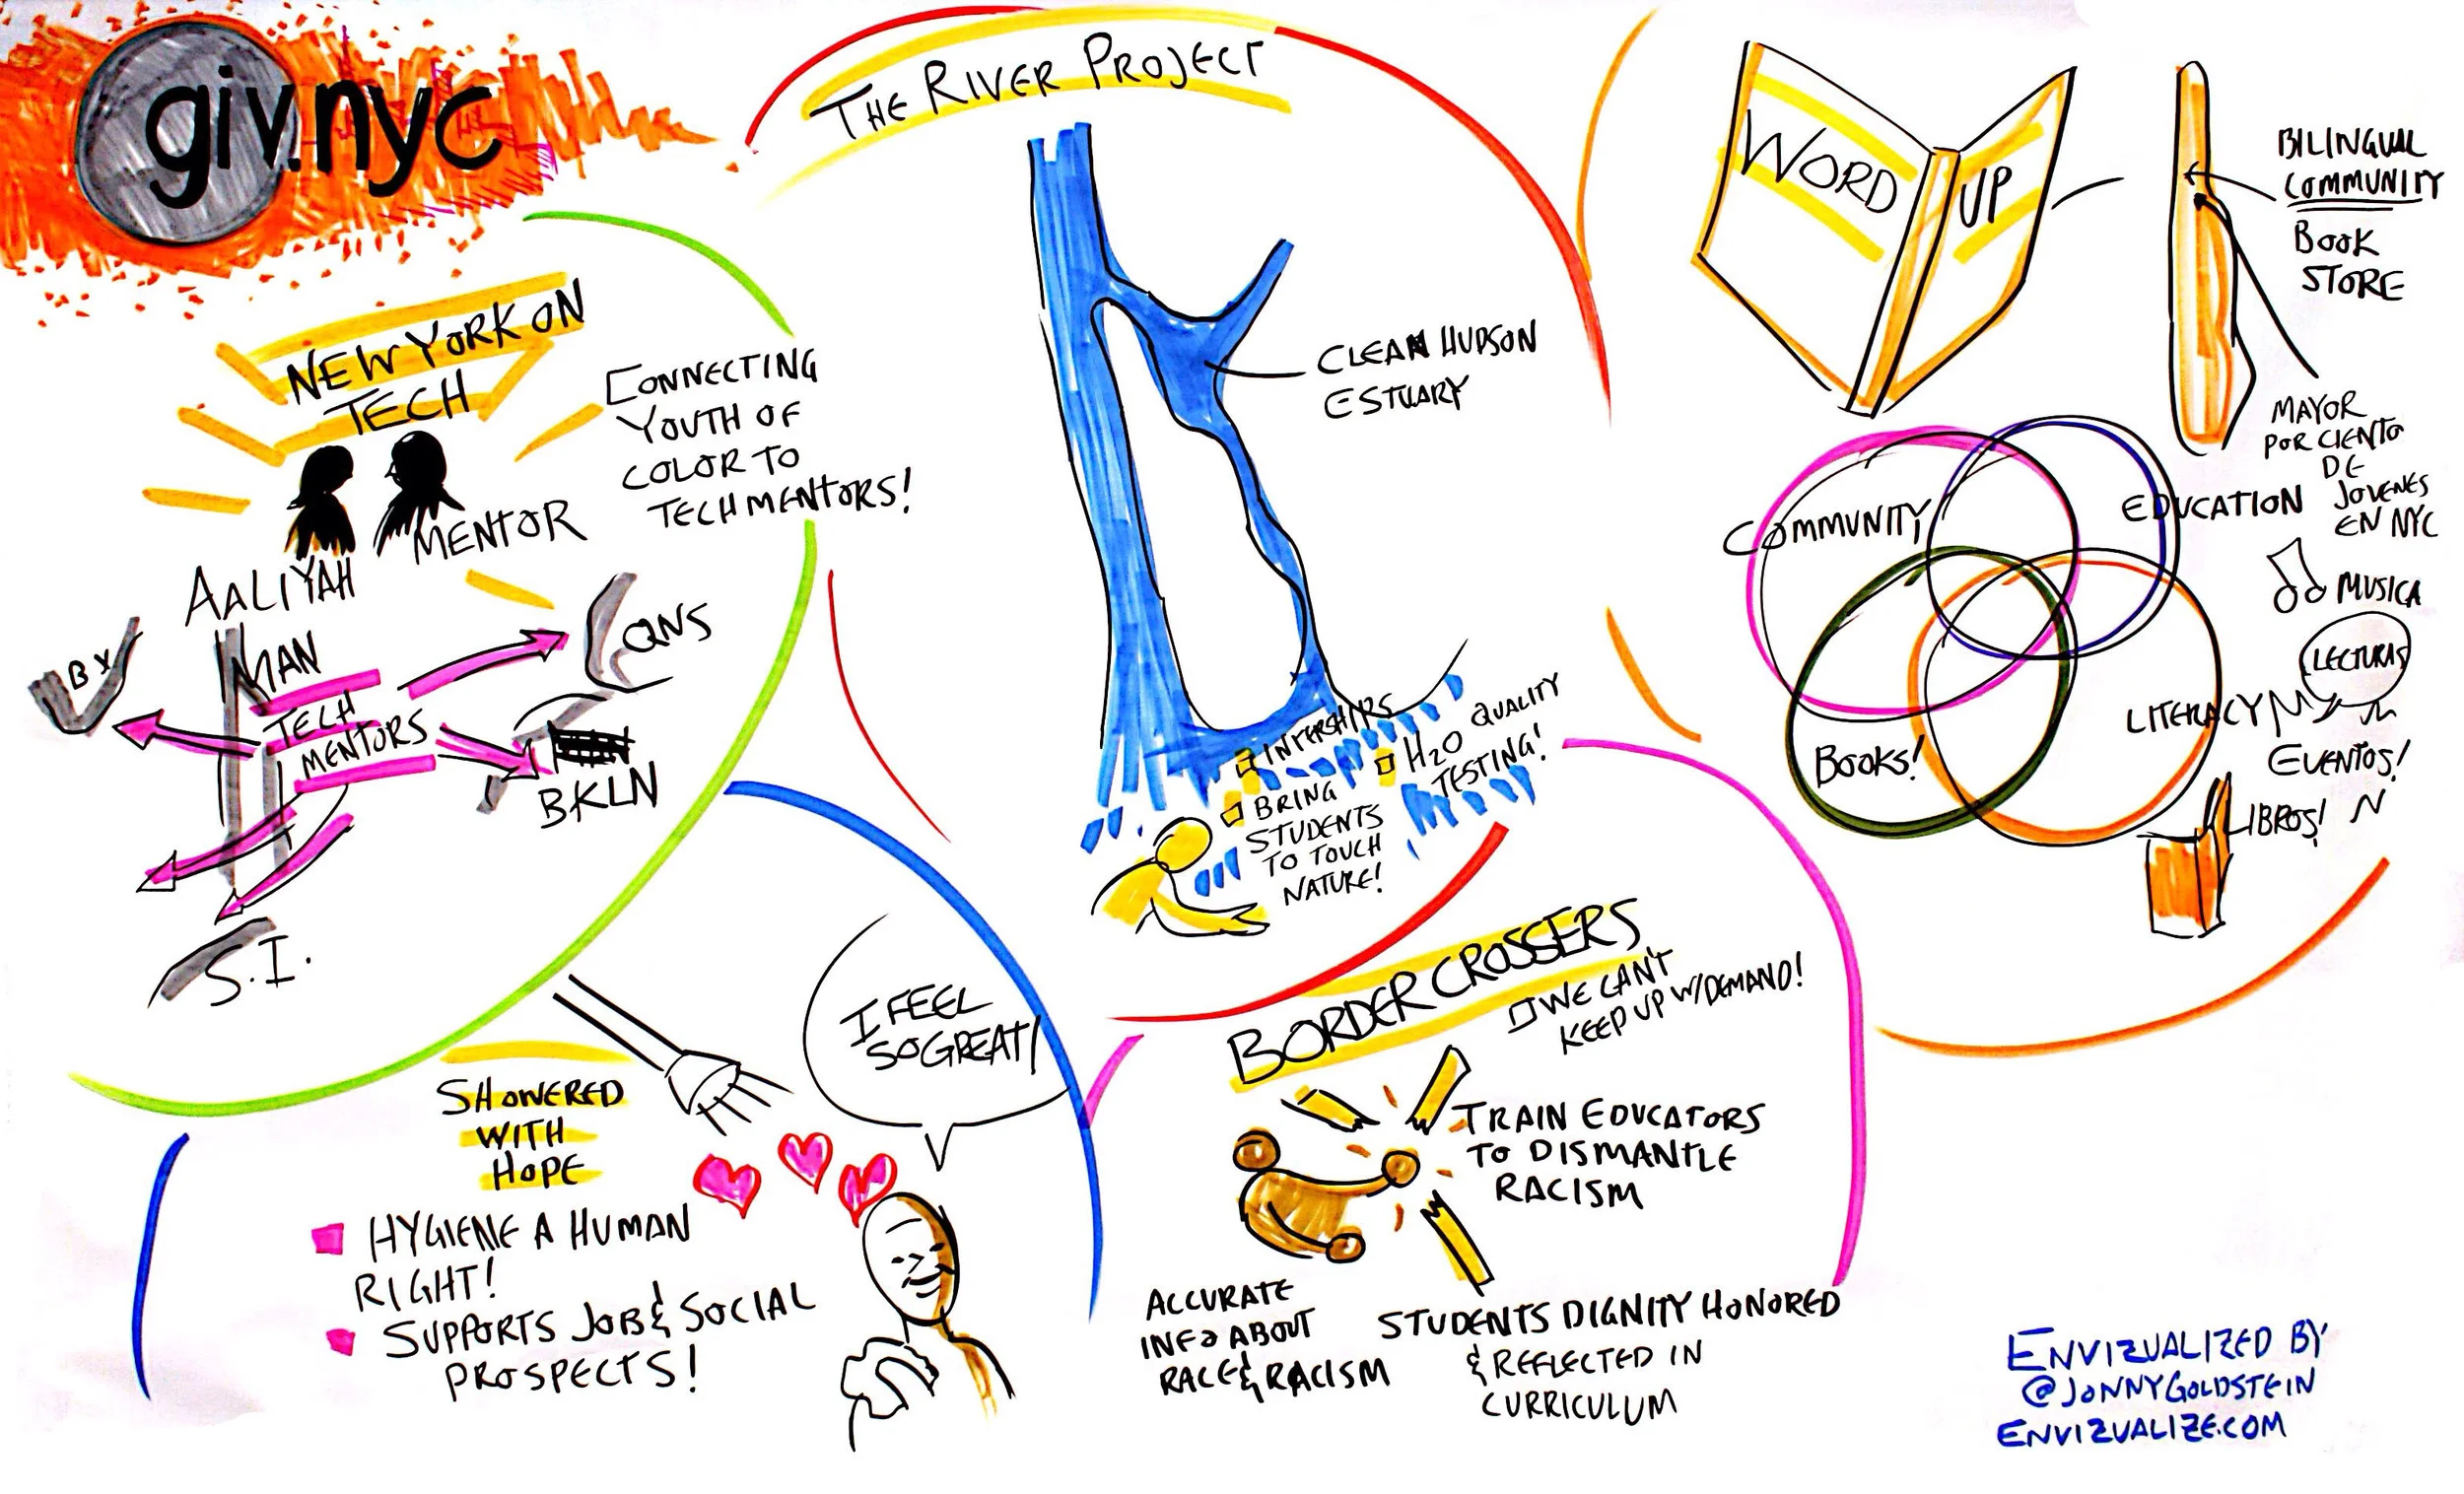 giv.nyc
NEW YORK ON
TECH
CONNECTING
YOUTH OF
COLOR TO
TECH MENTORS!
MENTOR
AALIYAH
BX
MAN
QNS
TECH
MENTORS
BKLN
S.I.
THE RIVER PROJECT
CLEAN HUDSON
ESTUARY
INTERSHIPS
H2O QUALITY
TESTING!
BRING
STUDENTS
TO TOUCH
NATURE!
WORD UP
BILINGUAL
COMMUNITY
BOOK
STORE
MAYOR
POR CIENTO
DE
JOVENES
EN NYC
COMMUNITY
EDUCATION
LITERACY
BOOKS!
MUSICA
LECTURAS
EVENTOS!
LIBROS!
SHOWERED
WITH
HOPE
I FEEL
SO GREAT!
HYGIENE A HUMAN
RIGHT!
SUPPORTS JOB & SOCIAL
PROSPECTS!
BORDER CROSSERS
WE CAN'T
KEEP UP W/DEMAND!
TRAIN EDUCATORS
TO DISMANTLE
RACISM
ACCURATE
INFO ABOUT
RACE & RACISM
STUDENTS DIGNITY HONORED
& REFLECTED IN
CURRICULUM
ENVIZUALIZED BY
@JONNYGOLDSTEIN
ENVIZUALIZE.COM